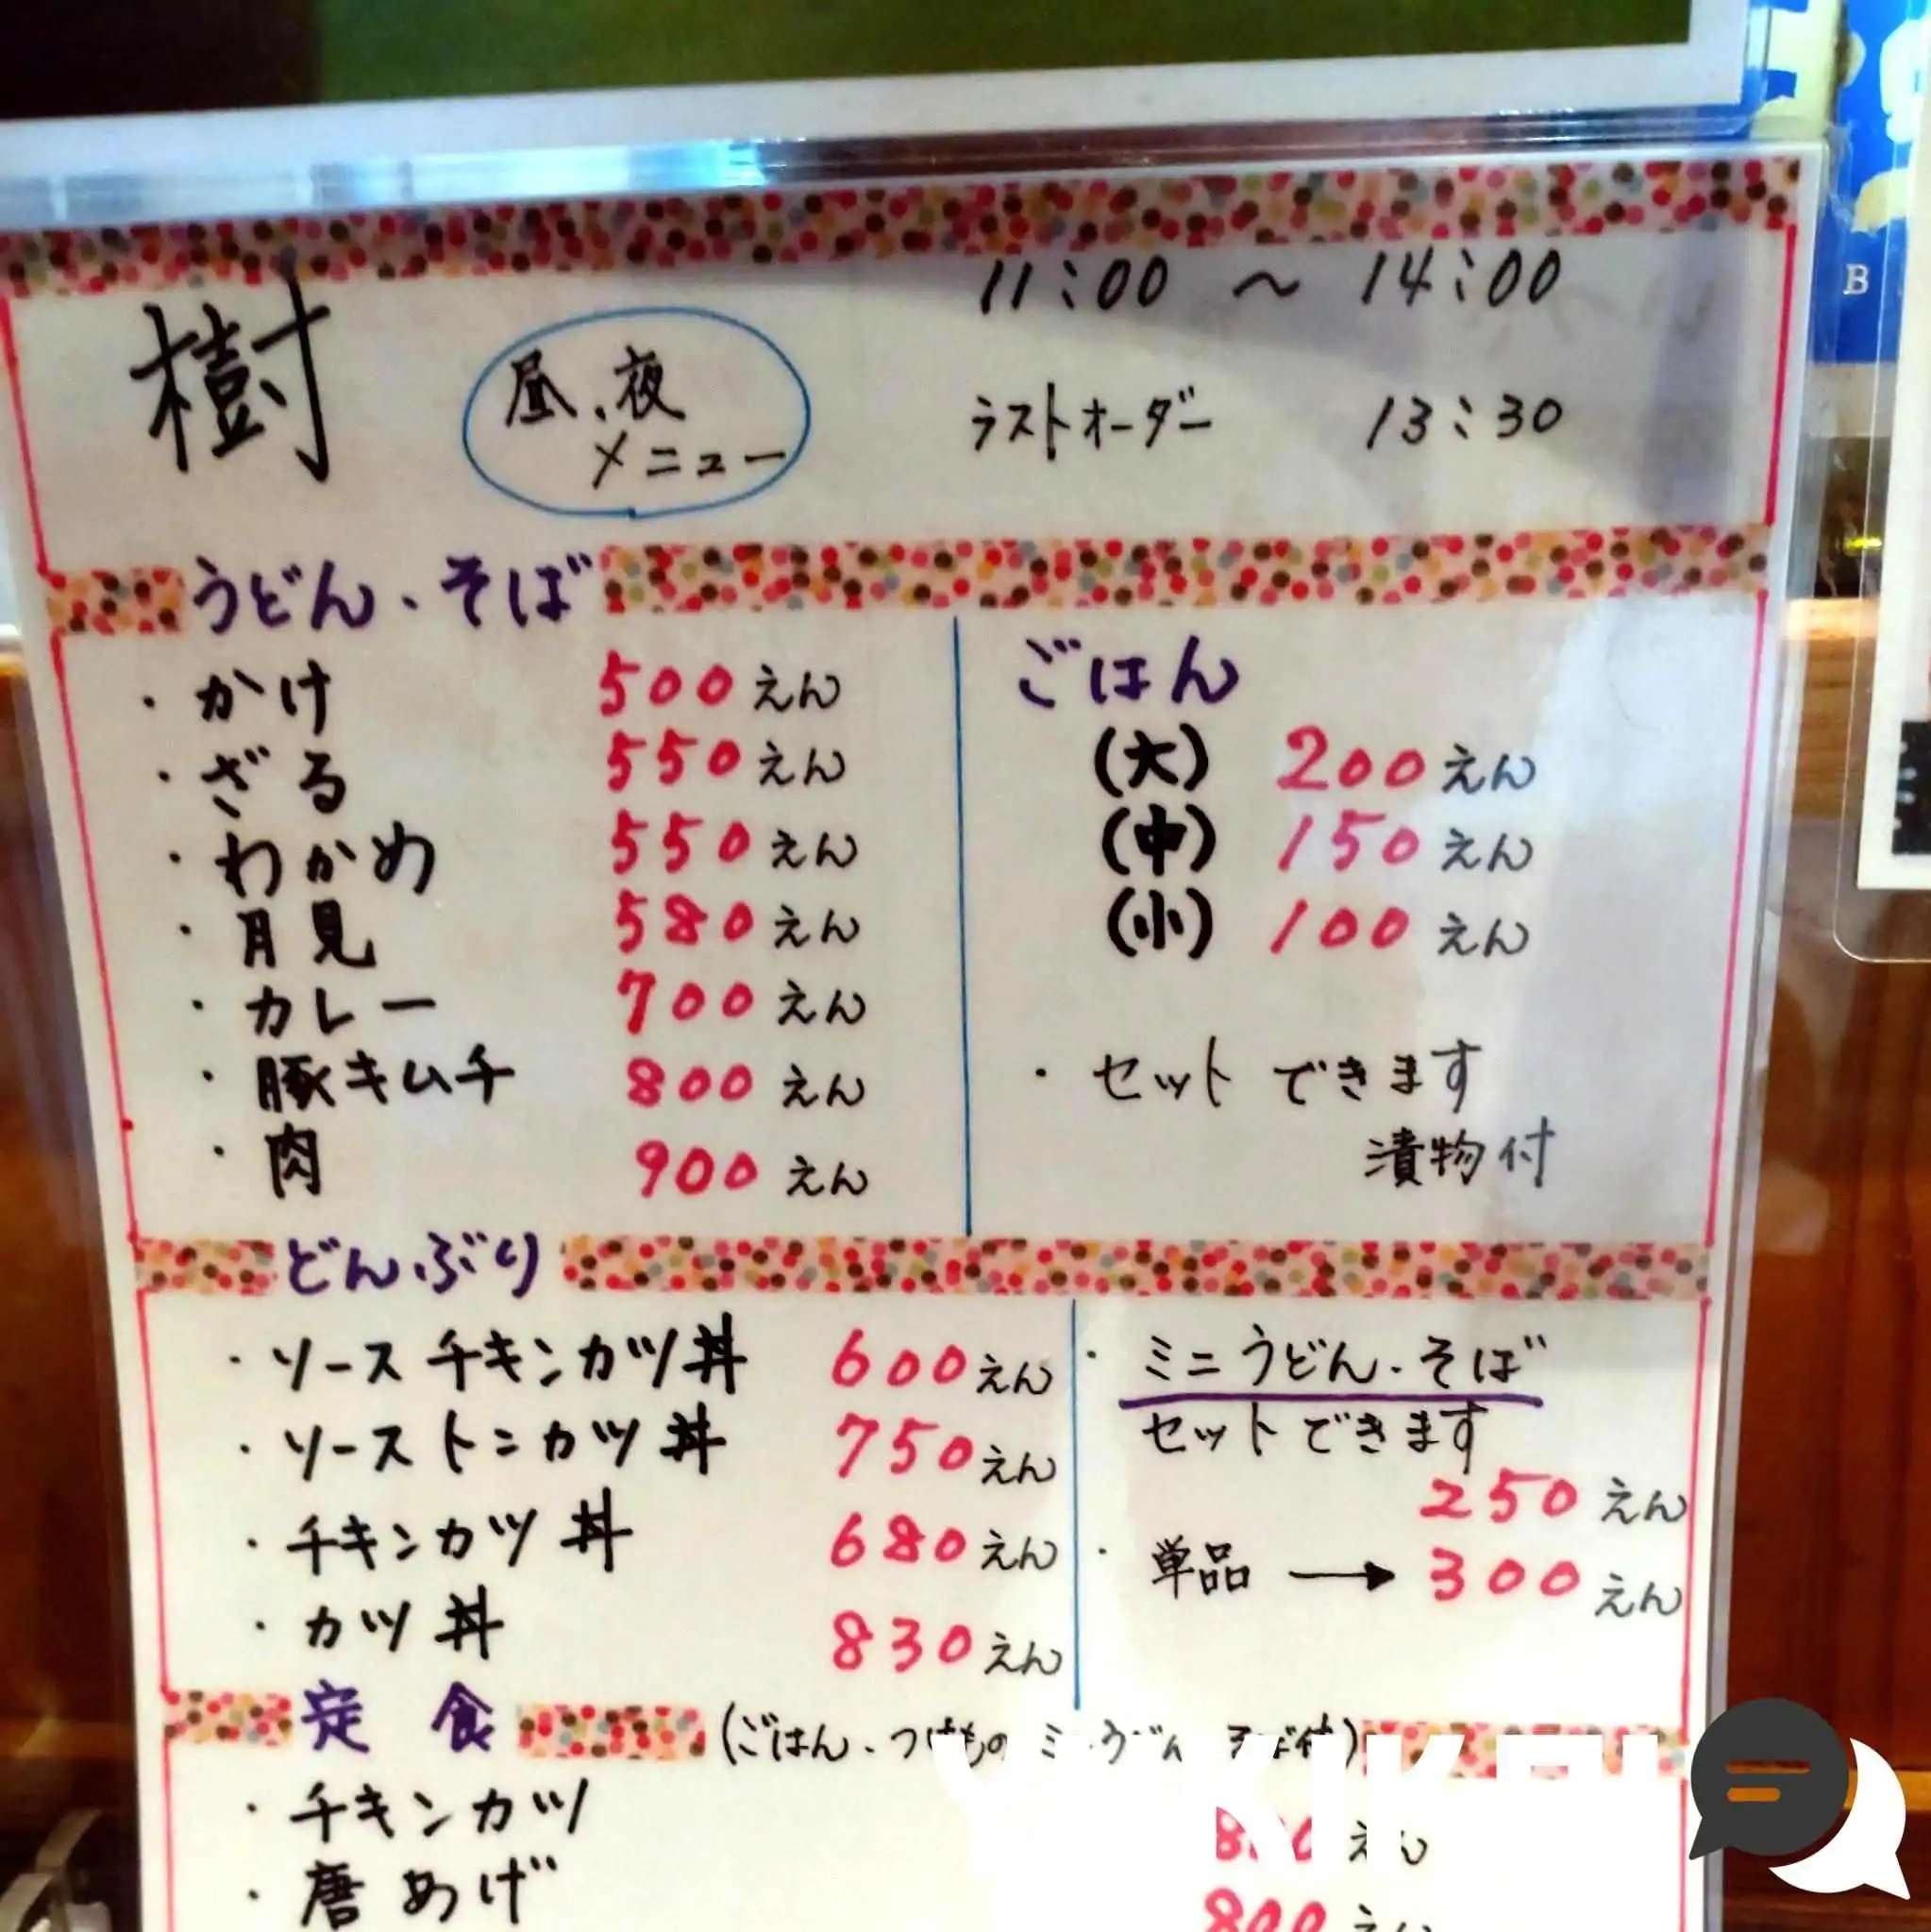 樹
昼、夜
メニュー
11:00 ~ 14:00
ラストオーダー 13:30
うどん・そば
・かけ 500えん
・ざる 550えん
・わかめ 550えん
・月見 580えん
・カレー 700えん
・豚キムチ 800えん
・肉 900えん
ごはん
(大) 200えん
(中) 150えん
(小) 100えん
・セットできます
漬物付
どんぶり
・ソースチキンカツ丼 600えん
・ソーストンカツ丼 750えん
・チキンカツ丼 680えん
・カツ丼 830えん
・ミニうどん・そば
セットできます
250えん
・単品 → 300えん
定食 (ごはん、つけもの
・チキンカツ
・唐あげ 800えん
B